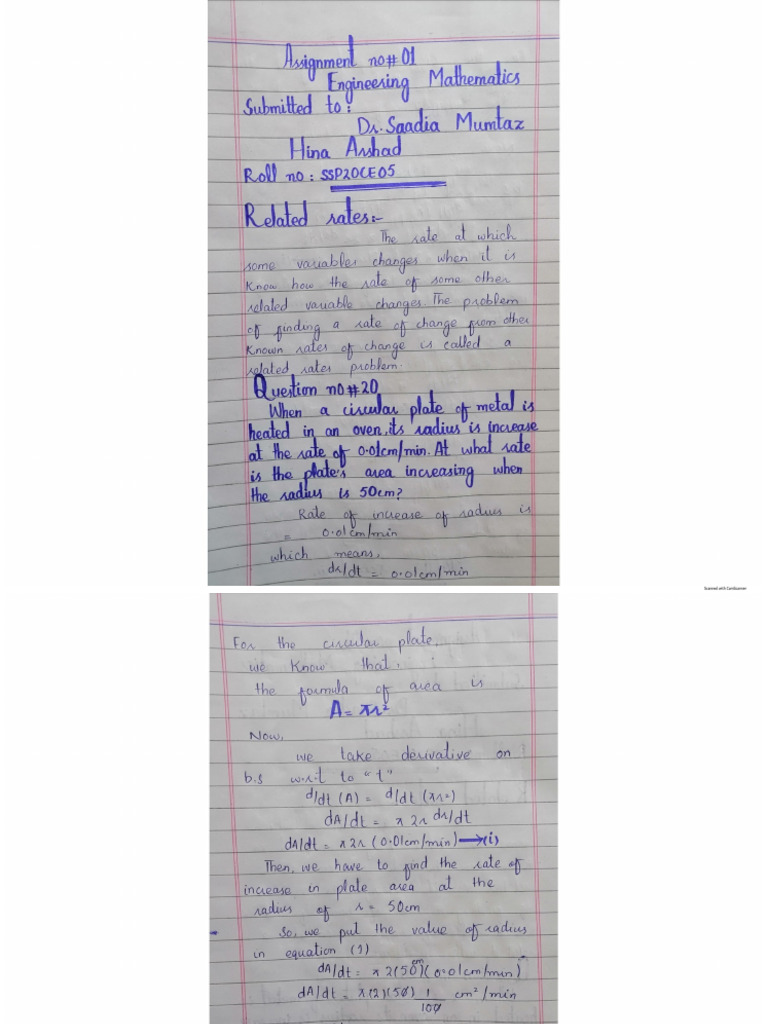 Assignment no#01
Engineering Mathematics
Submitted to:
Dr. Saadia Mumtaz
Hina Arshad
Roll no: SSP20CE05
Related rates:-
The rate at which
some variables changes when it is
Know how the rate of some other
related variable changes. The problem
of finding a rate of change from other
Known rates of change is called a
related rates problem.
Question no#20
When a circular plate of metal is
heated in an oven, its radius is increase
at the rate of 0.01cm/min. At what rate
is the plate's area increasing when
the radius is 50cm?
Rate of increase of radius is
= 0.01cm/min
which means,
dr/dt = 0.01cm/min
Scanned with CamScanner
For the circular plate,
we Know that,
the formula of area is
A = πr²
Now,
we take derivative on
b.s w.r.t to "t"
d/dt (A) = d/dt (πr²)
dA/dt = π 2r dr/dt
dA/dt = π 2r (0.01cm/min) → (i)
Then, we have to find the rate of
increase in plate area at the
radius of r = 50cm
So, we put the value of radius
in equation (1)
dA/dt = π 2(50cm)(0.01cm/min)
dA/dt = π(2)(50) 1/100 cm²/min